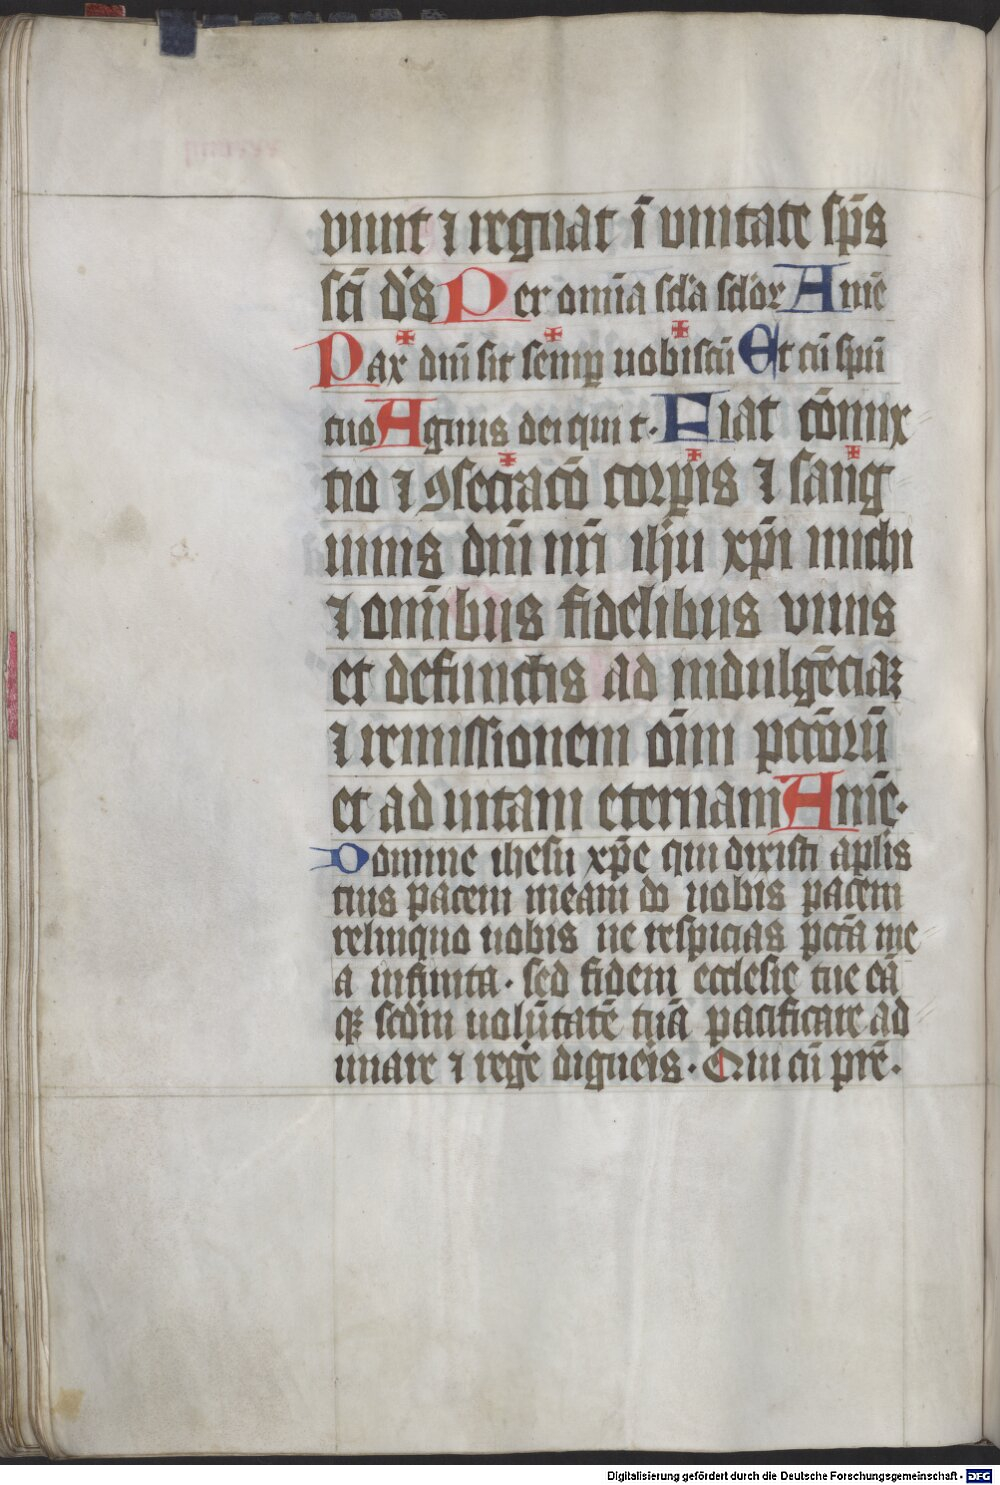 viuit ⁊ regnat ī vnitate sp̄s
sc̄i d's Per om̄ia sc̄la sclor Amē
Pax dn̄i sit semp̱ vobiscū Et cū spū
tuo Agnus dei qui t. Fiat cōmix
tio ⁊ ꝯsecracō corp̱is ⁊ sang
uinis dn̄i nr̄i ih̄u xp̄i michi
⁊ om̄ibus fidelibus viuis
et defunctis ad indulgēciaꝫ
⁊ remissionem oīm pccōrū
et ad uitam eternam Amē.
Domine ihesu xp̄e qui dixisti aplis
tuis pacem meam do uobis pacem
relinquo uobis ne respicias pctā me
a infinita. sed fidem ecclesie tue eā
qꝫ scdm̄ uolūtatē tuā pacificare ad
unare ⁊ regē digneis. Qui cū prē.
Digitalisierung gefördert durch die Deutsche Forschungsgemeinschaft - DFG